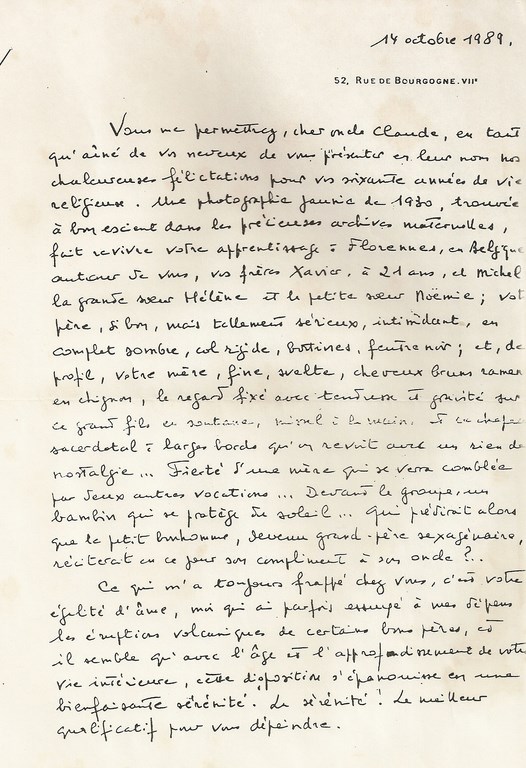 14 octobre 1989.
52, RUE DE BOURGOGNE. VIIe
Vous me permettrez, cher oncle Claude, en tant
qu'aîné de vos neveux de vous présenter en leur nom nos
chaleureuses félicitations pour vos soixante années de vie
religieuse. Une photographie jaunie de 1930, trouvée
à bon escient dans les précieuses archives maternelles,
fait revivre votre apprentissage à Florennes, en Belgique
autour de vous, vos frères Xavier, à 21 ans, et Michel
la grande sœur Hélène et la petite sœur Noëmie ; vot
père, si bon, mais tellement sérieux, intimidant, en
complet sombre, col rigide, bottines, feutre noir ; et, de
profil, votre mère, fine, svelte, cheveux bruns ramen
en chignon, le regard fixé avec tendresse et gravité sur
ce grand fils en soutane, missel à la main, et
sacerdotal à larges bords qu'on revoit avec un rien de
nostalgie... Fierté d'une mère qui se verra comblée
par deux autres vocations... Devant le groupe, un
bambin qui se protège du soleil... Qui prédirait alors
que le petit bonhomme, devenu grand-père sexagénaire,
réciterait en ce jour son compliment à son oncle ?..
Ce qui m'a toujours frappé chez vous, c'est votre
égalité d'âme, moi qui ai parfois essuyé à mes dépens
les éruptions volcaniques de certains bons pères, et
il semble qu'avec l'âge et l'approfondissement de votre
vie intérieure, cette disposition s'épanouisse en une
bienfaisante sérénité. La sérénité ! Le meilleur
qualificatif pour vous dépeindre.